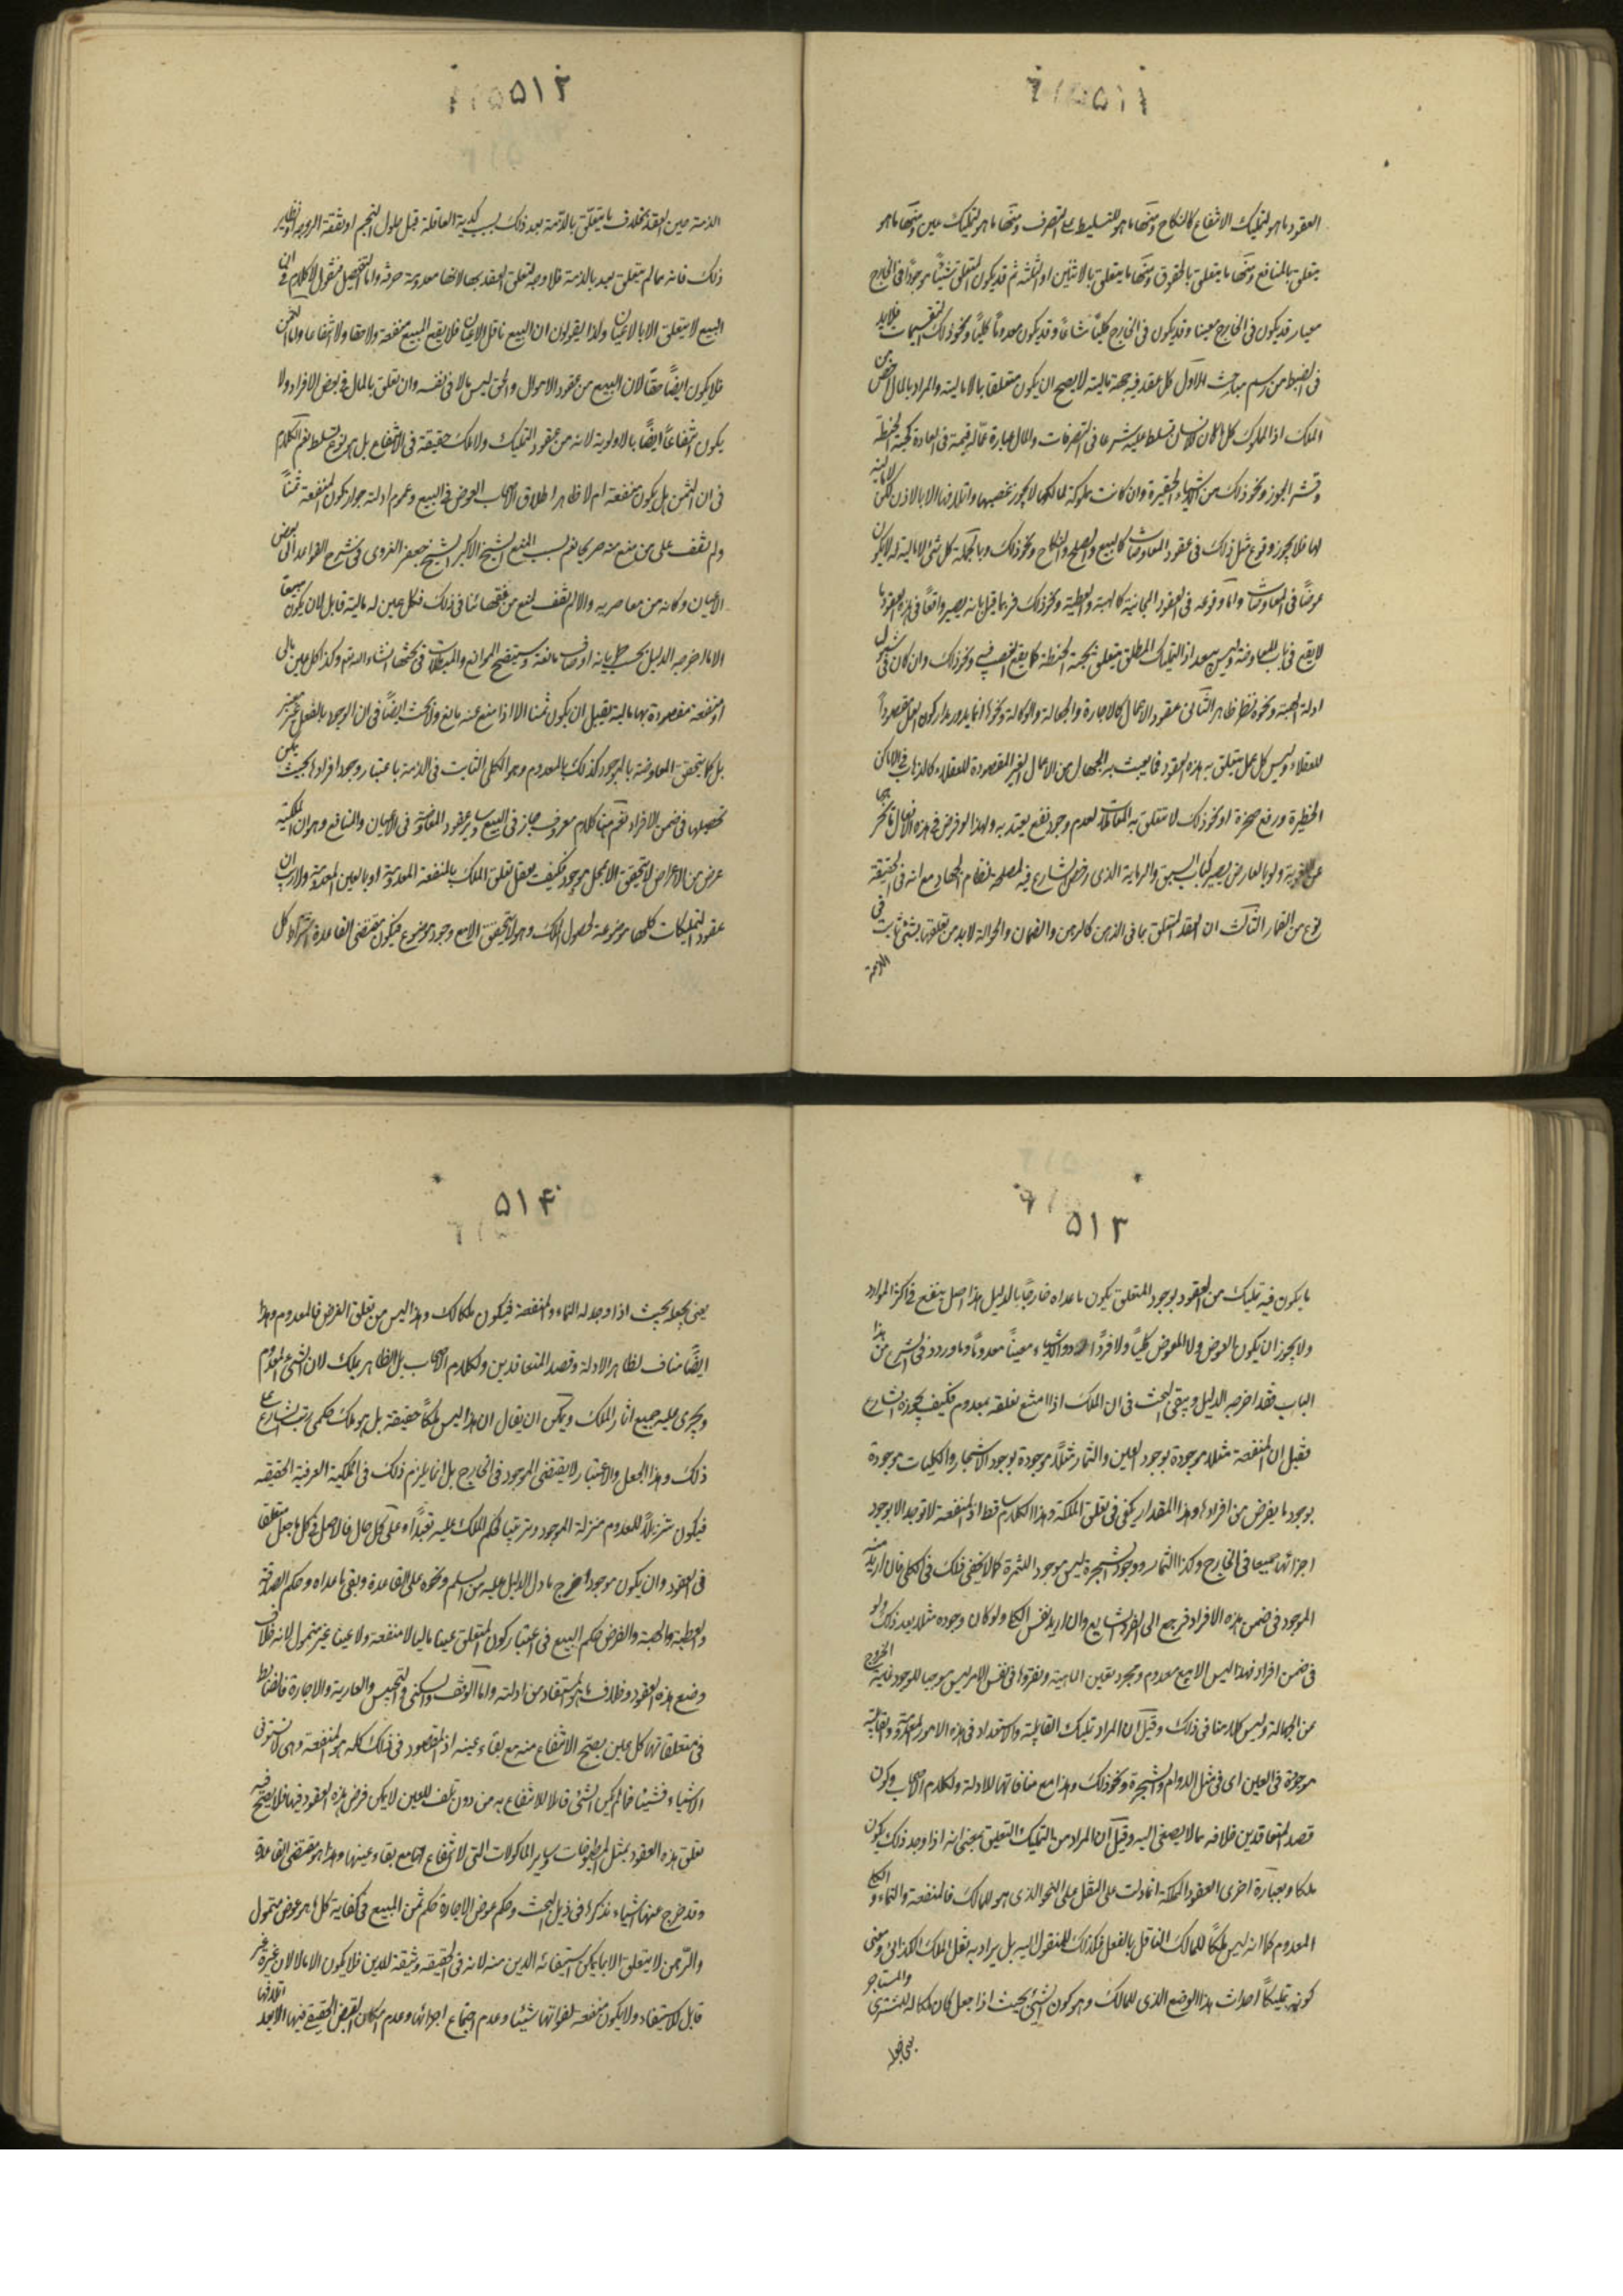 ٥١١
العقود ما هو لتمليك الانتفاع كالنكاح ومنها ما هو للتسليط على التصرف ومنها ما هو لتمليك عين ومنها ما هو
يتعلق بالمنافع ومنها ما يتعلق بالحقوق ومنها ما يتعلق بالاثنين او الثلثة ثم قد يكون المتعلق شيئاً موجوداً في الخارج
قد يكون في الخارج معينا وقد يكون في الخارج كلياً مشاعاً وقد يكون معدوماً كلياً ونحو ذلك من التقسيمات فلابد
في الضبط من رسم مباحث الاول كل عقد فيه جهة مالية لا يصح ان يكون متعلقا بما لا مالية له والمراد بالمال اخص من
الملك اذ المملوك كل ما كان للانسان تسلط عليه شرعا في التصرفات والمال عبارة عما له قيمة في العادة كحبة الحنطة
وقشر الجوز ونحو ذلك من الاشياء الحقيرة وان كانت مملوكة لمالكها لا يجوز غصبها واتلافها الا بالاذن لكن لا مالية
لها فلا يجوز وقوع مثل ذلك في عقود المعاوضات كالبيع والصلح والنكاح ونحو ذلك وبالجملة كل شئ لا مالية له لا يكون
عوضاً في المعاوضات واما وقوعه في العقود المجانية كالهبة والعطية ونحو ذلك فربما قيل بانه يصير واقعاً في هذه العقود ما
لا يقع في باب المعاوضة وليس ببعيد اذ التمليك المطلق متعلق بحبة الحنطة كما يقع الغصب فيه ونحو ذلك وان كان في شمول
ادلة الهبة ونحوه نظر ظاهر الثاني عقود الاعمال كالاجارة والجعالة والوكالة ونحوها انما يدور مدار كون العمل مقصوداً
للعقلاء وليس كل عمل يتعلق به هذه العقود فما يعبث به الجهال من الاعمال الغير المقصودة للعقلاء كالذهاب في الاماكن
الخطيرة ورفع صخرة او نحو ذلك لا يتعلق به المعاملات لعدم وجود نفع يعتد به ولهذا لو فرض في هذه الافعال ما يخرج
عن اللغوية ولو بالعارض يصير كباب السبق والرماية الذي رخص الشارع فيه لمصلحة نظام الجهاد مع انه في الحقيقة
نوع من القمار الثالث ان العقد المتعلق بما في الذمن كالرهن والضمان والحوالة لابد من تعلقها بشئ ثابت في
الذمة
٥١٢
الذمة حين العقد بخلاف ما يتعلق بالذمة بعد ذلك بسبب كدية العاقلة قبل حلول النجم او نفقة الزوجة او نظير
ذلك فانه ما لم يتعلق بعد بالذمة فلا وجه لتعلق العقد بها لانها معدومة صرفة واما التفصيل فنقول لا كلام في ان
البيع لا يتعلق الا بالاعيان ولذا يقولون ان البيع ناقل الاعيان فلا يقع المبيع منفعة ولا حقا ولا انتفاعا واما الثمن
فلا يكون ايضاً حقاً لان البيع من عقود الاموال والحق ليس مالا في نفسه وان تعلق بالمال في بعض الافراد ولا
يكون انتفاعاً ايضاً بالاولوية لانه من عقود التمليك ولا ملك حقيقة في الانتفاع بل هو نوع تسلط نعم الكلام
في ان الثمن هل يكون منفعة ام لا ظاهر اطلاق الاصحاب العوض في البيع وعموم ادلته جواز كون المنفعة ثمناً
ولم نقف على من منع منه صريحا نعم نسب المنع الشيخ الاكبر الشيخ جعفر الغروي في شرح القواعد الى بعض
الاعيان وكانه من معاصريه والا لم نقف لمنع من فقهائنا في ذلك فكل عين له مالية قابل لان يكون مبيعا
الا ما اخرجه الدليل بحسب طريان اوصاف مانعة وسيتضح الموانع والمبطلات في بحثها انشاء الله تعالى وكذا كل عين مالي
او منفعة مقصودة بها مالية يقبل ان يكون ثمنا الا اذا منع عنه مانع ولا بحث ايضاً في ان الوجود بالفعل غير معتبر
بل كما يتحقق المعاوضة بالموجود كذلك بالمعدوم وهو الكلي الثابت في الذمة باعتبار وجود افرادها بحيث يمكن
تحصيلها في ضمن الافراد نعم هنا كلام معروف جار في البيع وساير عقود المعاوضة في الاعيان والمنافع وهو ان الملكية
عرض من الاعراض لا يتحقق الا بمحل موجود فكيف يعقل تعلق الملك بالمنفعة المعدومة او بالعين المعدومة ولا ريب ان
عقود التمليكات كلها موضوعة لحصول الملك وهو لا يتحقق الا مع وجود موضوع فيكون مقتضى القاعدة اشتراط كل
٥١٣
ما يكون فيه تمليك من العقود لوجود المتعلق يكون ما عداه خارجاً بالدليل هذا اصل ينفع في اكثر الموارد
ولا يجوز ان يكون العوض ولا المعوض كلياً ولا فرداً معيناً معدوماً وما ورد في الشرع من هذا
الباب فقد اخرجه الدليل ويبقى البحث في ان الملك اذا امتنع تعلقه بمعدوم فكيف يجوزه الشارع
فقيل ان المنفعة مثلا موجودة بوجود العين والثمار مثلاً موجودة بوجود الاشجار والكليات موجودة
بوجود ما يفرض من افرادها وهذا المقدار يكفي في تعلق الملكة وهذا الكلام ساقط اذ المنفعة لا توجد الا بوجود
اجزائها جميعا في الخارج وكذا الثمار ووجود الشجرة ليس موجود الثمرة كما لا يخفى فلك في الكلي فان اريد منه
الموجود في ضمن هذه الافراد فرجع الى الفرد الشايع وان اريد نفس الكلي ولو كان وجوده مثلا بعد ذلك ولو
في ضمن افراد فهذا ليس الا بيع معدوم ومجرد تعين الماهية وتقررها في نفس الامر ليس موجبا للوجود غايته الخروج
عن الجهالة وليس كلامنا في ذلك وقيل ان المراد تمليك القابلية والاستعداد في هذه الامور المعدومة والقابلية
موجودة في العين اي في مثل الدوام والشجرة ونحو ذلك وهذا مع منافاتها للادلة ولكلام الاصحاب وكون
قصد المتعاقدين خلافه مما لا يصغى اليه وقيل ان المراد من التمليك التعليق بمعنى انه اذا وجد ذلك يكون
ملكا وبعبارة اخرى العقود المملكة انما دلت على النقل على النحو الذي هو للمالك فالمنفعة والنماء والكلي
المعدوم كما انه ليس ملكاً للمالك الناقل بالفعل فكذلك للمنقول اليه بل يراد به نقل الملك الكذائي ومعنى
كونه تمليكاً احداث هذا الوضع الذي للمالك وهو كون الشئ بحيث اذا جعل كان ملكا له للمشتري والمستاجر
يعني جعله
٥١٤
يعني يجعله بحيث اذا وجد له النماء والمنفعة فيكون ملكا لك وهذا ليس من تعلق العرض بالمعدوم وهذا
ايضاً مناف لظاهر الادلة وقصد المتعاقدين ولكلام الاصحاب بل الظاهر يملك لان الشئ المعدوم
ويجري عليه جميع اثار الملك ويمكن ان يقال ان هذا ليس ملكاً حقيقة بل هو ملك حكمي رتب الشارع على
ذلك وهذا الجعل والاعتبار لا يقتضي الموجود في الخارج بل انما يلزم ذلك في الملكية العرفية الحقيقه
فيكون تنزيلاً للمعدوم منزلة الموجود وترتيبا لحكم الملك عليه تعبداً وعلى كل حال فالاصل في كل ما جعل متعلقا
في العقود وان يكون موجوداً خرج ما دل الدليل عليه من السلم ونحوه على القاعدة وبقي ما عداه وحكم الصدقة
والعطية والهبة والقرض حكم البيع في اعتبار كون المتعلق عينا ماليا لا منفعة ولا عينا غير متمول لانه خلاف
وضع هذه العقود وخلاف ما هو المستفاد من ادلته واما الوقف والسكنى والتحبيس والعارية والاجارة فالضابط
في متعلقاتها كل عين يصح الانتفاع منه مع بقاء عينه اذ المقصود في ذلك كله هو المنفعة وهي لا تستوفى
الاشياء فشيئا فما لم يكن الشئ قابلا للانتفاع به من دون تلف للعين لا يمكن فرض هذه العقود فيها فلا يصح فيه
تعلق هذه العقود بمثل المطبوخات وساير الماكولات التي لا انتفاع بها مع بقاء عينها وهذا هو مقتضى القاعدة
وقد خرج عنها اشياء نذكرها في ذيل البحث وحكم عوض الاجارة حكم ثمن المبيع في كفاية كل ما هو عوض متمول
والرهن لا يتعلق الا بما يمكن استيفائه الدين منه لانه في الحقيقه وثيقة للدين فلا يكون الا مالا لان غيره غير
قابل للاستيفاء ولا يكون منفعة لفواتها شيئا وعدم اجتماع اجزائها وعدم امكان القبض الحقيقي فيها الا بعد اتلافها